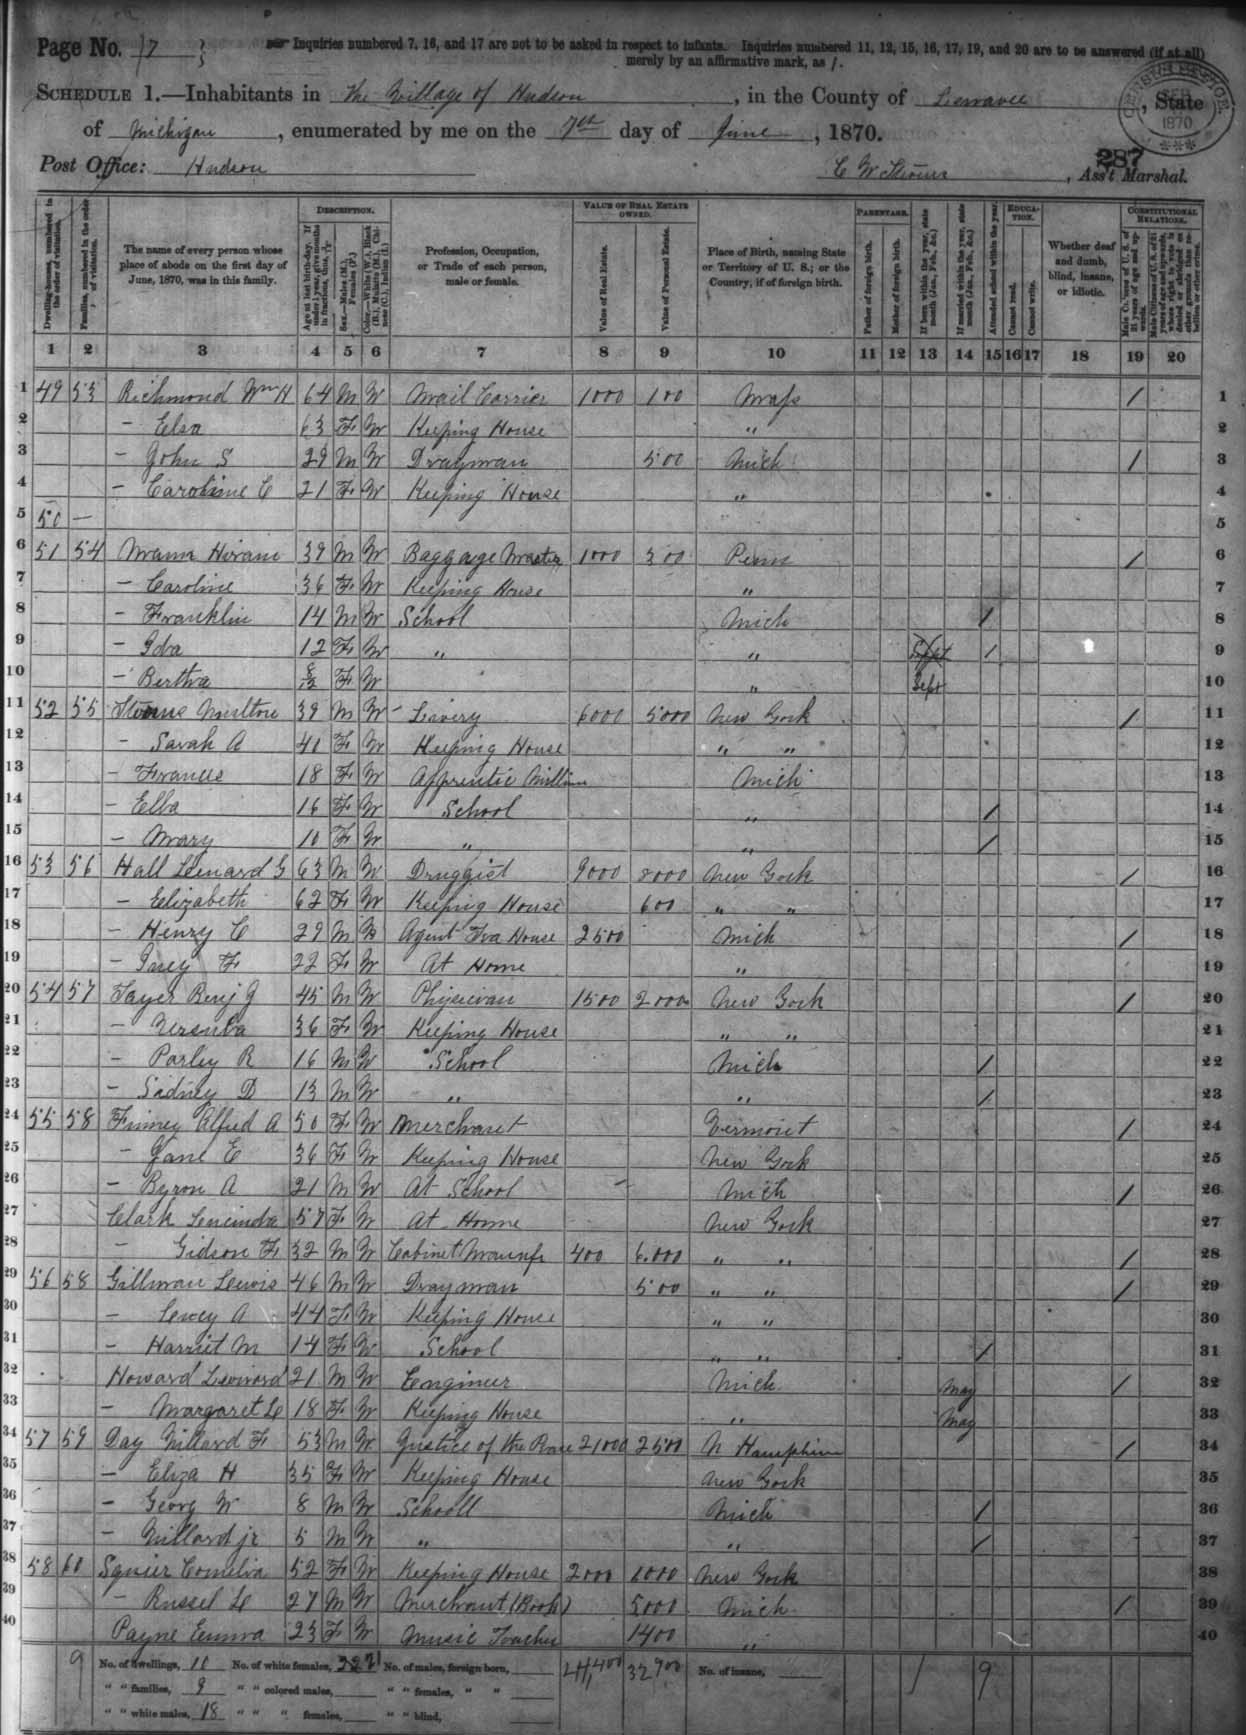 Page No. 17
Inquiries numbered 7, 16, and 17 are not to be asked in respect to infants. Inquiries numbered 11, 12, 15, 16, 17, 19, and 20 are to be answered (if at all)
merely by an affirmative mark, as /.
SCHEDULE 1.—Inhabitants in the Village of Hudson, in the County of Lenawee, State
of Michigan, enumerated by me on the 7th day of June, 1870.
CENSUS OFFICE. 1870
287
Post Office: Hudson C W, Ass't Marshal.
DESCRIPTION. VALUE OF REAL ESTATE OWNED. PARENTAGE. EDUCATION. CONSTITUTIONAL RELATIONS.
Dwelling-houses, numbered in the order of visitation.
Families, numbered in the order of visitation.
The name of every person whose place of abode on the first day of June, 1870, was in this family.
Age at last birth-day. If under 1 year, give months in fractions, thus, 3/12
Sex.—Males (M.), Females (F.)
Color.—White (W.), Black (B.), Mulatto (M.), Chinese (C.), Indian (I.)
Profession, Occupation, or Trade of each person, male or female.
Value of Real Estate.
Value of Personal Estate.
Place of Birth, naming State or Territory of U. S.; or the Country, if of foreign birth.
Father of foreign birth.
Mother of foreign birth.
If born within the year, state month (Jan., Feb., &c.)
If married within the year, state month (Jan., Feb., &c.)
Attended school within the year.
Cannot read.
Cannot write.
Whether deaf and dumb, blind, insane, or idiotic.
Male Citizens of U. S. of 21 years of age and upwards.
Male Citizens of U. S. of 21 years of age and upwards, whose right to vote is denied or abridged on other grounds than rebellion or other crime.
1 2 3 4 5 6 7 8 9 10 11 12 13 14 15 16 17 18 19 20
1 49 53 Richmond Wm H 64 M W Mail Carrier 1000 100 Mass / 1
2 – Elsa 63 F W Keeping House " 2
3 – John S 29 M W Drayman 500 Mich / 3
4 – Caroline C 21 F W Keeping House " 4
5 50 – 5
6 51 54 Mann Hiram 39 M W Baggage Master 1000 300 Penn / 6
7 – Caroline 36 F W Keeping House " 7
8 – Franklin 14 M W School Mich / 8
9 – Ida 12 F W " " Sept / 9
10 – Bertha 8/12 F W " Sept 10
11 52 55 Milton 39 M W – Livery 6000 5000 New York / 11
12 – Sarah A 41 F W Keeping House " " 12
13 – Frances 18 F W Apprentic Millin Mich 13
14 – Ella 16 F W School " / 14
15 – Mary 10 F W " " / 15
16 53 56 Hall Leonard G 63 M W Druggist 9000 8000 New York / 16
17 – Elizabeth 62 F W Keeping House 600 " " 17
18 – Henry C 29 M W Agent House 2500 Mich / 18
19 – F 22 F W At Home " 19
20 54 57 Benj J 45 M W Physician 1500 2000 New York / 20
21 – Ursula 36 F W Keeping House " " 21
22 – Parley R 16 M W School Mich / 22
23 – Sidney D 13 M W " " / 23
24 55 58 Finney Alfred A 50 F W Merchant Vermont / 24
25 – Jane E 36 F W Keeping House New York 25
26 – Byron A 21 M W At School Mich / 26
27 Clark Lucinda 57 F W At Home New York 27
28 – Gidson F 32 M W Cabinet Maunf 400 6.000 " " / 28
29 56 58 Gillman Lewis 46 M W Drayman 500 " " / 29
30 – Lucy A 44 F W Keeping House " " 30
31 – Harriet M 14 F W School " " / 31
32 Howard 21 M W Engineer Mich May / 32
33 – Margaret 18 F W Keeping House " May 33
34 57 59 Day Millard F 53 M W Justice of the Peace 21000 2500 N Hampshire / 34
35 – Eliza H 35 F W Keeping House New York 35
36 – Georg W 8 M W Schooll Mich / 36
37 – Millard jr 5 M W " " / 37
38 58 60 Squier Cornelia 52 F W Keeping House 2000 1000 New York 38
39 – Russel 27 M W Merchant (Book) 5000 Mich / 39
40 Payne Emma 23 F W Music Teacher 1400 " 40
9 No. of dwellings, 10 No. of white females, 21 No. of males, foreign born, 44,400 32900 No. of insane, 1 9
" " families, 9 " " colored males, " " females, " "
" " white males, 18 " " " females, " " blind,